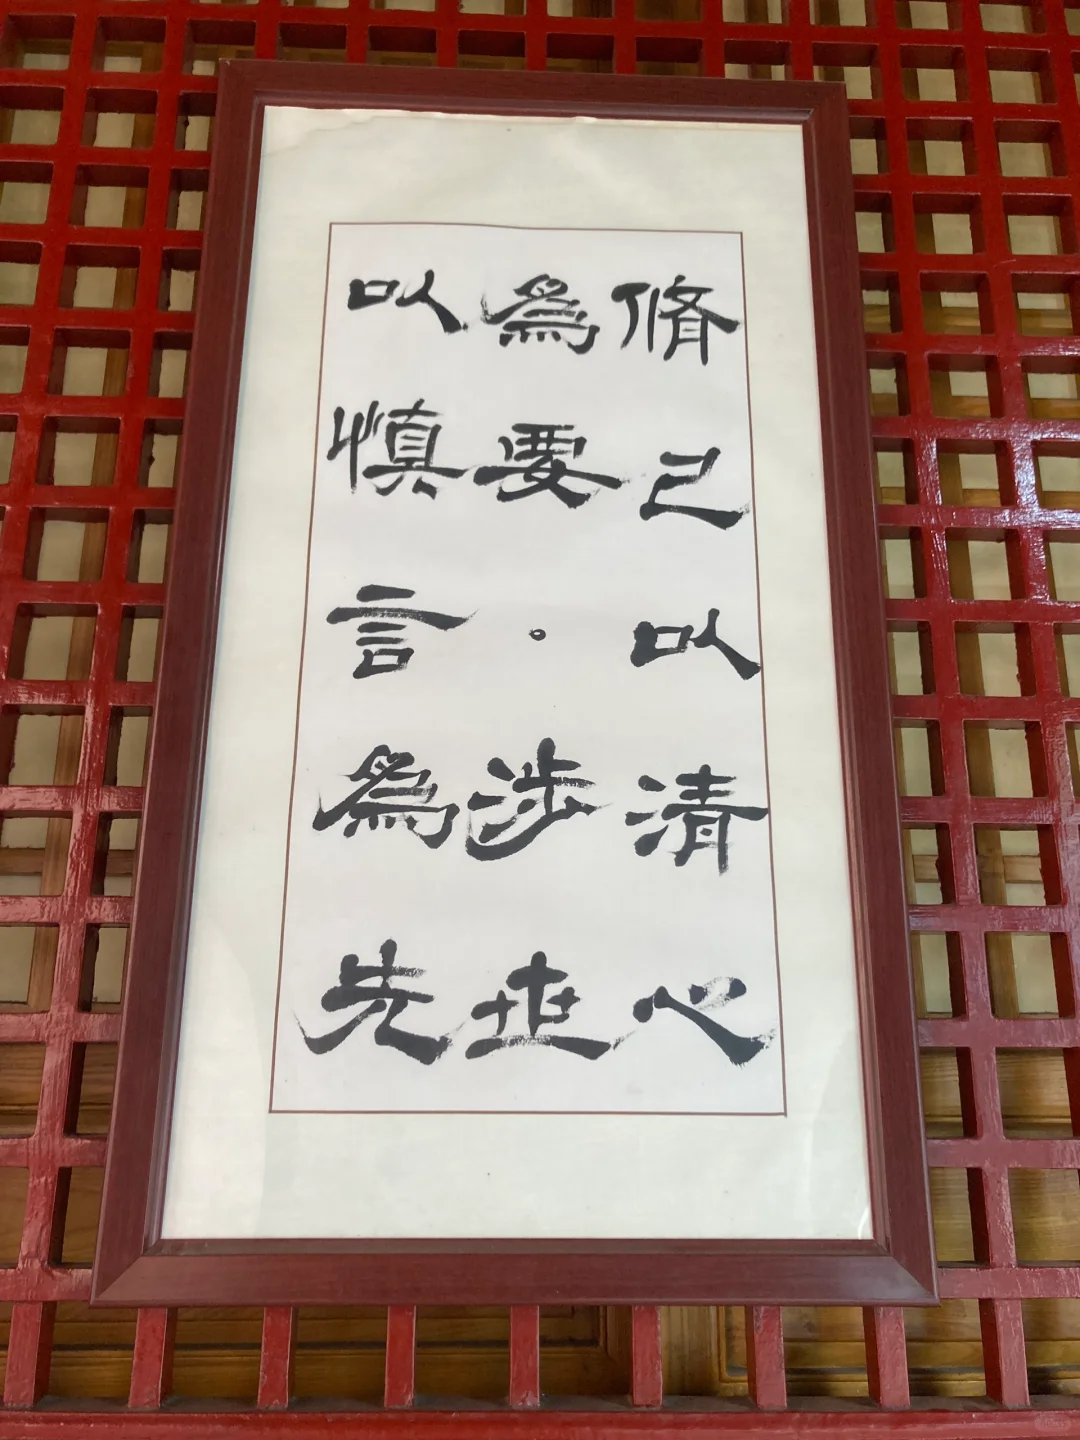 脩己以清心
為要。涉世
以慎言為先